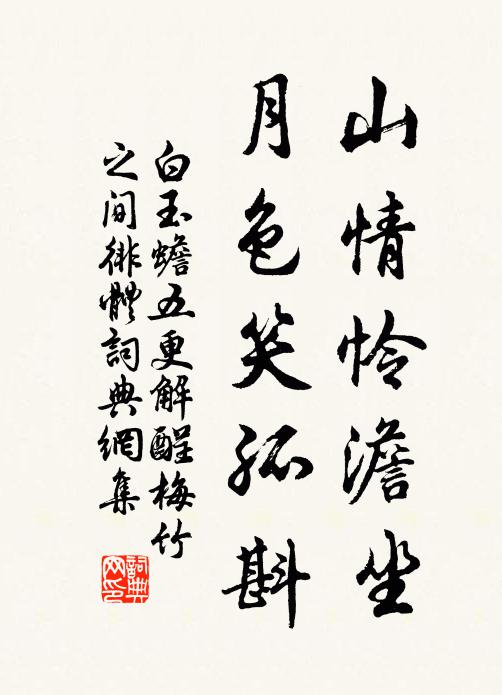 山情怜澹坐
月色笑孤斟
白玉蟾五更解酲梅竹
之间徘体词典網集
詞典
网印